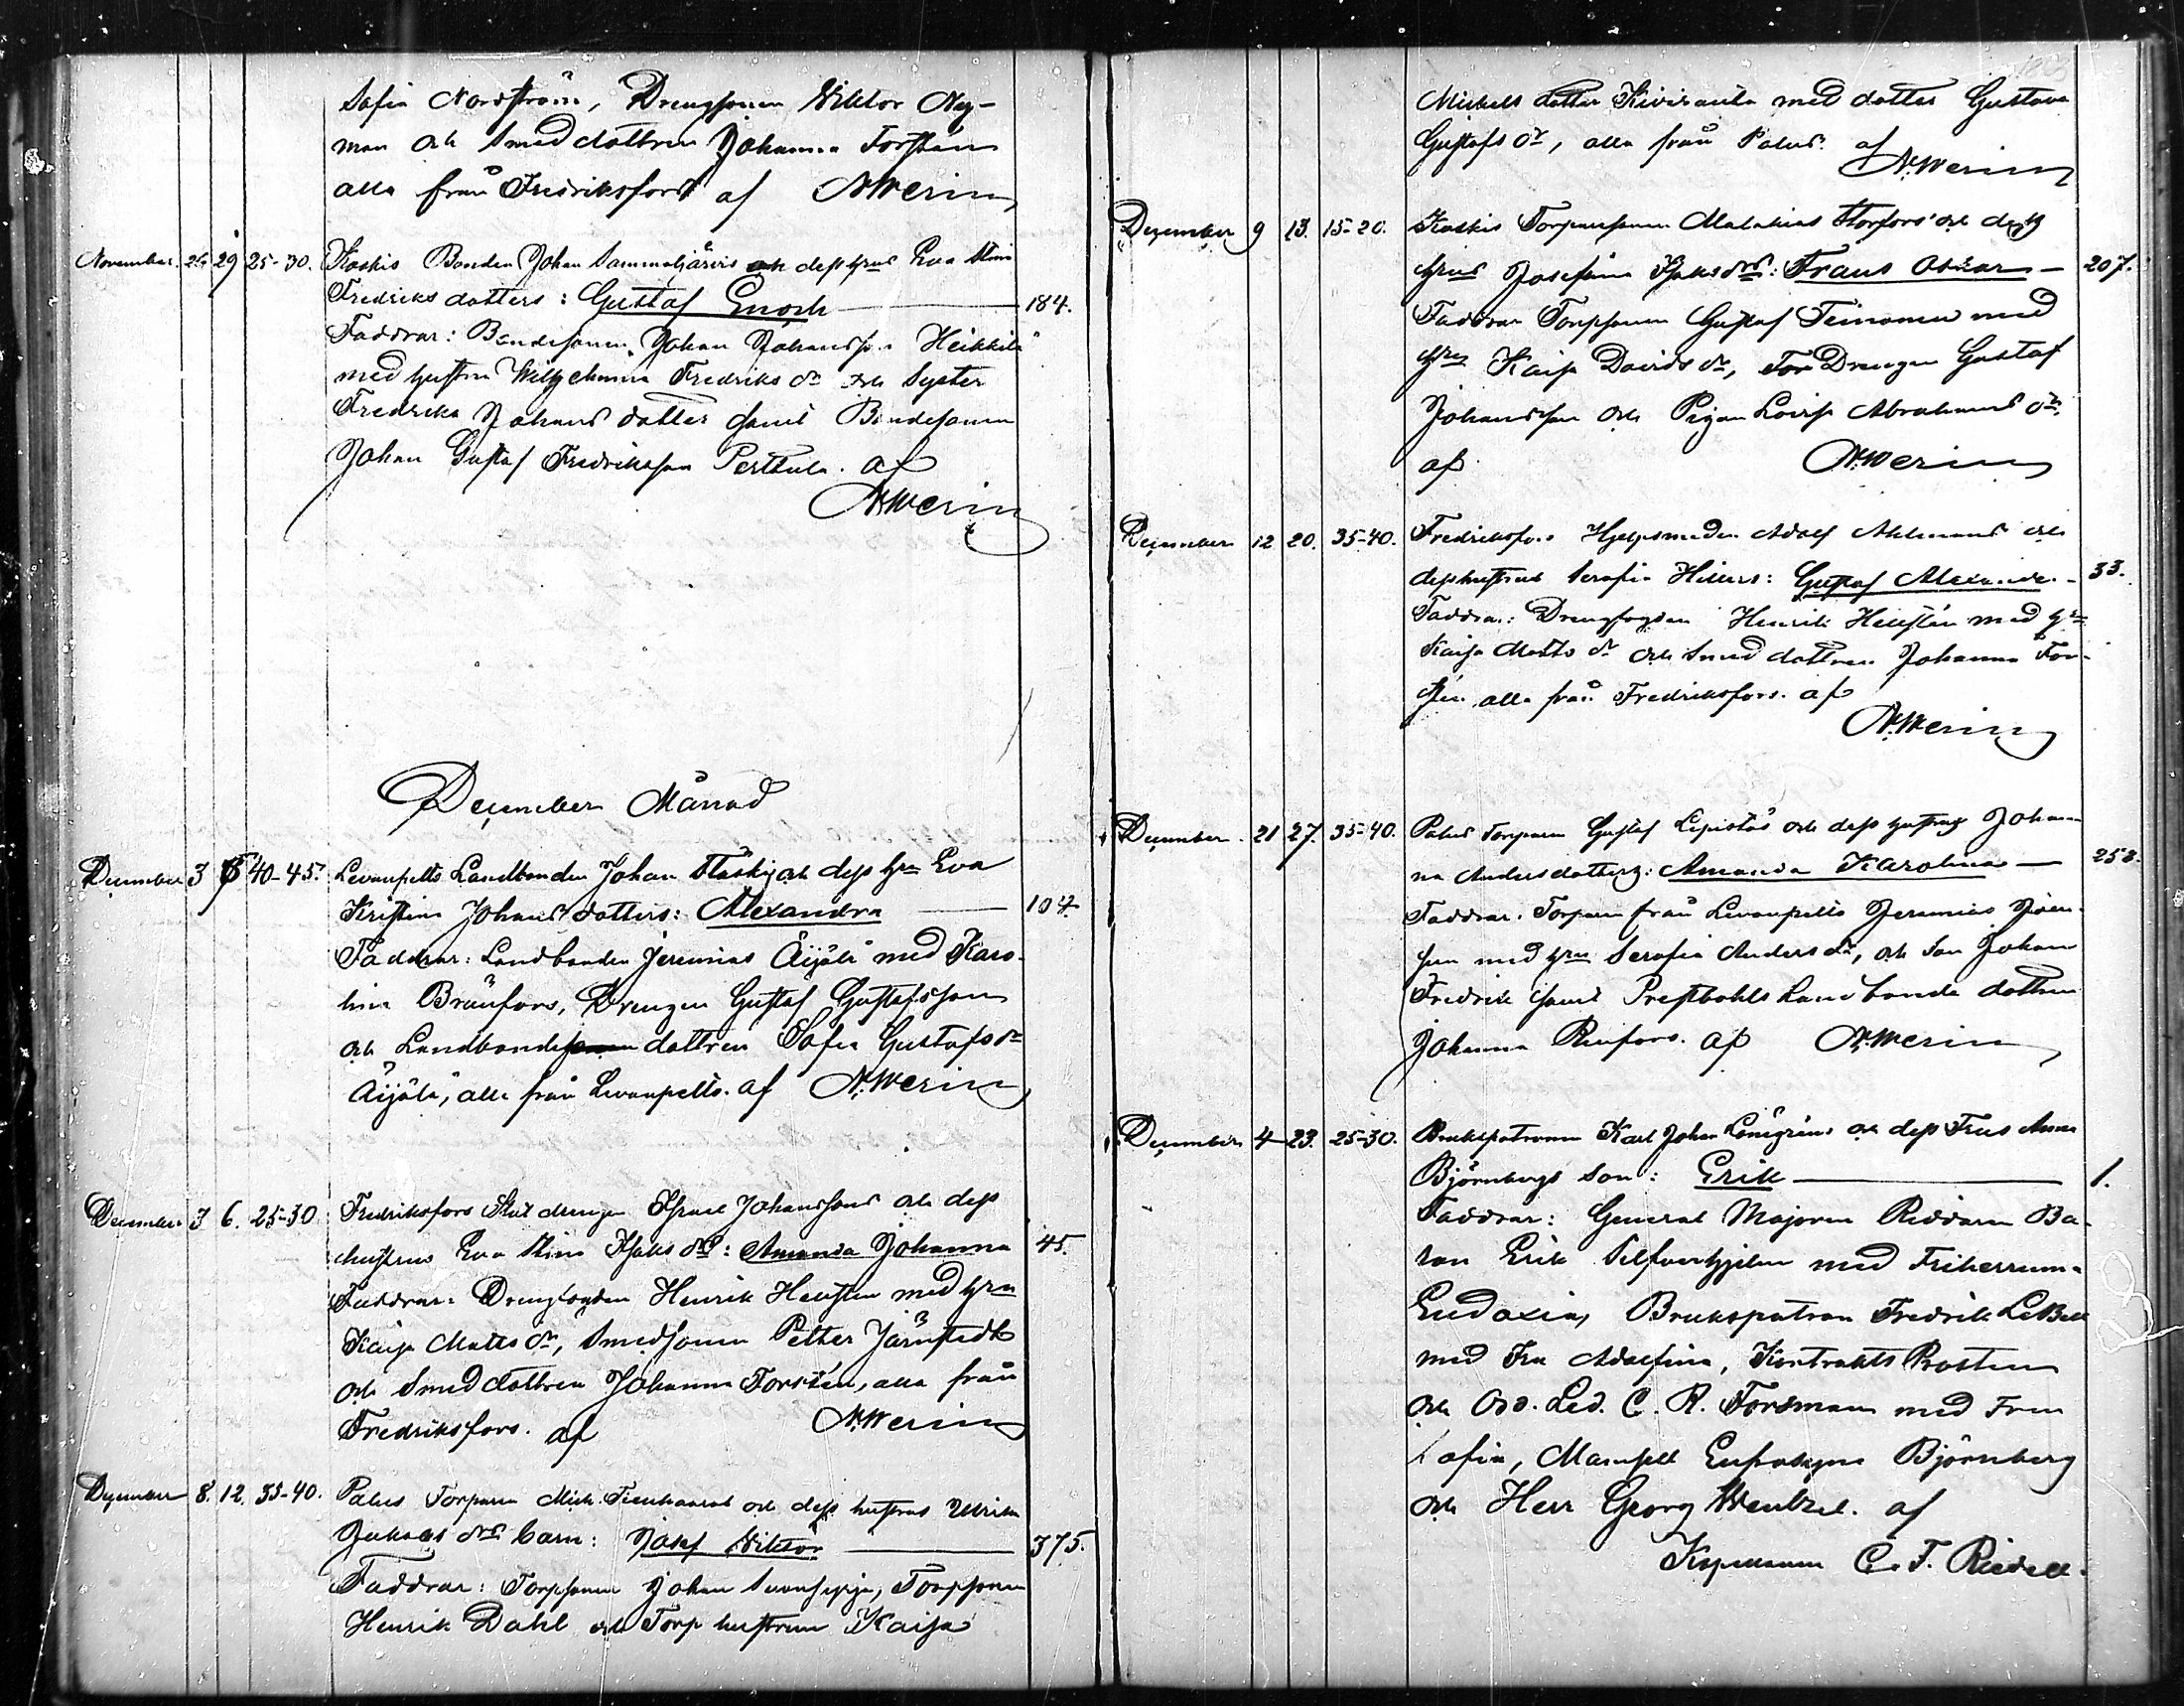 Sofia Nordström, Drengsonen Viktor Ny-
man och Smeddottren Johanna Forstén
alla från Fredriksfors af N.Werin
November 26 29 25-30. Koskis Bonden Johan Sammaljärvis och dess hrus Eva Stina
Fredriksdotters: Gustaf Enoch 184.
Faddrar: Bondesonen Johan Johansson Heikkilä
med hustru Wilhelmina Fredriks dr och Syster
Fredrika Johans dotter samt Bondesonen
Johan Gustaf Fredriksson Perttula. af
N.Werin
December Månad
December 3 6 40-45. Levanpelto Landbonden Johan Kaski och dess hru Eva
Kristina Johans dotters: Alexandra 107.
Faddrar: Landbonden Jeremias Äijälä med Karo-
lina Brunfors, Drengen Gustaf Gustafsson
och Landbonde dottren Sofia Gustafs dr
Äijälä, alla från Levanpelto. af N.Werin
December 3 6. 25-30 Fredriksfors Stat drengen Israel Johanssons och dess
hustrus Eva Stina Isaks drs: Amanda Johanna 45.
Faddrar: Drengfogden Henrik Hellsten med hru
Kaisa Matts dr, Smedsonen Petter Järnstedt
och Smeddottren Johanna Forstén, alla från
Fredriksfors. af N.Werin
December 8. 12. 35-40. Palus Torparen Mich. och dess hustrus Ulrika
drs barn: Josef Viktor 375.
Faddrar: Torpsonen Johan Torpsonen
Henrik Dahl och Torp hustrun Kaisa
Mickels dotter Kiviranta med dotter Gustava
Gustafs dr, alla från Palus. af
N.Werin
December 9 13. 15-20. Koskis Torparsonen Malakias Storfors och dess
hrus Josefina Isaks drs: Frans Oskar 207.
Faddrar Torpsonen Gustaf Teinonen med
hru Kaisa Davids dr, Torp Drengen Gustaf
Johansson och Pigan Lovisa Abrahams dr.
af N.Werin
December 12 20. 35-40. Fredriksfors Hjelpsmeden Adolf Ahlmans och
dess hustrus Serafia Hillers: Gustaf Alexander 33.
Faddrar: Drengfogden Henrik Hellstén med hru
Kaisa Matts dr och Smed dottren Johanna For-
stén alla från Fredriksfors. af
N.Werin
December 21 27. 35-40. Palus Torparen Gustaf Lepistös och dess hustrus Johan-
na Andersdotters: Amanda Karolina 258.
Faddrar: Torparen från Levanpelto Jeremias
med hru Serafia Anders dr, och Son Johan
Fredrik samt Prestbohls Landbonde dottren
Johanna Renfors. af N.Werin
December 4 23. 25-30. Brukspatronen Karl Johan Lönegréns och dess Frus Anna
Björnbergs Son: Erik 1.
Faddrar: General Majoren Riddaren Ba-
ron Erik Silfverhjelm med Friherrinna
Eudoxia, Brukspatron Fredrik LeBell
med Fru Adolfina, Kontrakts Prosten
och Ord. Led. C. R. Forsman med Fru
Sofia, Mamsell Björnberg
och Herr Georg Wentzel. af
Kapellanen C. F. Ridell.